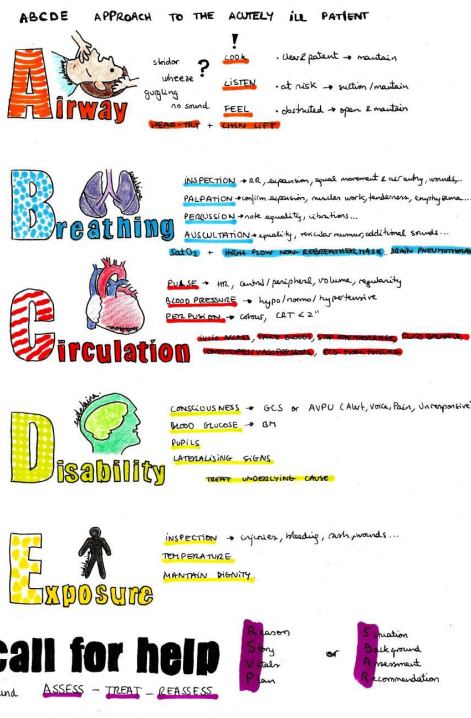 ABCDE APPROACH TO THE ACUTELY ILL PATIENT
Airway
stridor
wheeze
gurgling
no sound
?
!
LOOK
LISTEN
FEEL
HEAD-TILT + CHIN LIFT
• clear & patent → maintain
• at risk → suction/maintain
• obstructed → open & maintain
Breathing
INSPECTION → RR, expansion, equal movement & air entry, wounds,..
PALPATION → confirm expansion, muscles work, tenderness, emphysema...
PERCUSSION → note equality, vibrations...
AUSCULTATION → equality, vesicular murmur, additional sounds...
SatO2 + HIGH FLOW NON-REBREATHER MASK, DRAIN PNEUMOTHORAX
Circulation
PULSE → HR, central/peripheral, volume, regularity
BLOOD PRESSURE → hypo/normo/hypertensive
PERFUSION → colour, CRT < 2"
STOP HAEMORRHAGE, FLUID BALANCE,
ECG MONITORING
Disability
CONSCIOUSNESS → GCS or AVPU (Alert, Voice, Pain, Unresponsive)
BLOOD GLUCOSE → BM
PUPILS
LATERALISING SIGNS
TREAT UNDERLYING CAUSE
Exposure
INSPECTION → injuries, bleeding, rash, wounds...
TEMPERATURE
MANTAIN DIGNITY
call for help
und ASSESS - TREAT - REASSESS
Reason
Story
Vitals
Plan
or
Situation
Background
Assessment
Recommendation